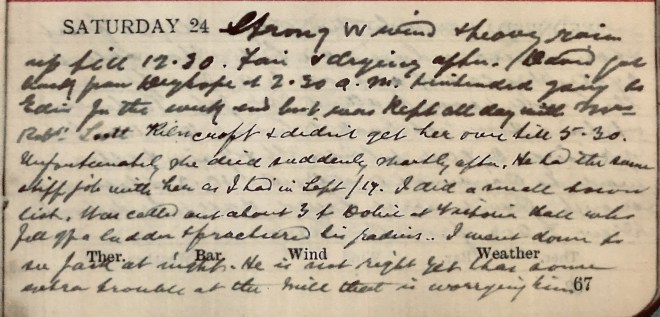 SATURDAY 24 Strong W wind & heavy rain
up till 12.30. Fair & drying after. David got
back from at 2.30 a.m. & intended going to
Edin for the week end but was kept all day with Mrs
Robt. Scott & didn't get her over till 5-30.
Unfortunately she died suddenly shortly after. He had the same
stiff job with her as I had in Sept/19. I did a small town
list. Was called out about 3 to at Victoria Hall who
fell off a ladder & fractured his radius.. I went down to
see Jack at night. He is not right yet & has some
Ther. Bar. Wind Weather
extra trouble at the mill that is worrying him.
67